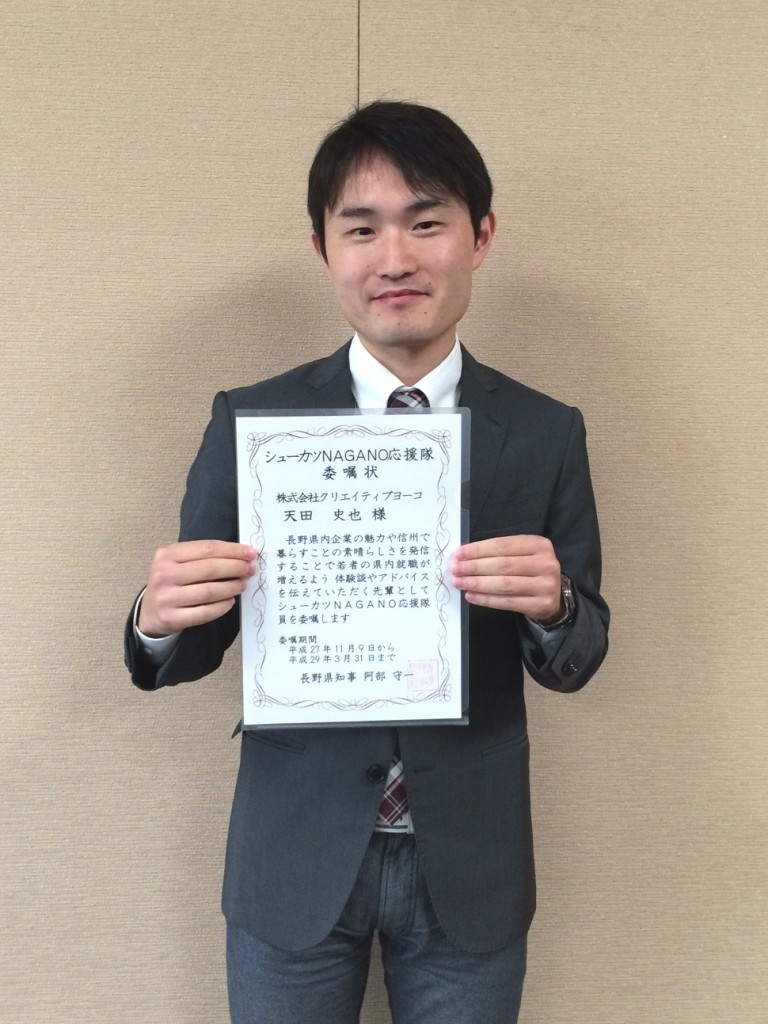 シューカツNAGANO応援隊
委嘱状
株式会社クリエイティブヨーコ
天田 史也 様
長野県内企業の魅力や信州で
暮らすことの素晴らしさを発信
することで若者の県内就職が
増えるよう 体験談やアドバイス
を伝えていただく先輩として
シューカツNAGANO応援隊
員を委嘱します
委嘱期間
平成27年11月9日から
平成29年3月31日まで
長野県知事 阿部 守一